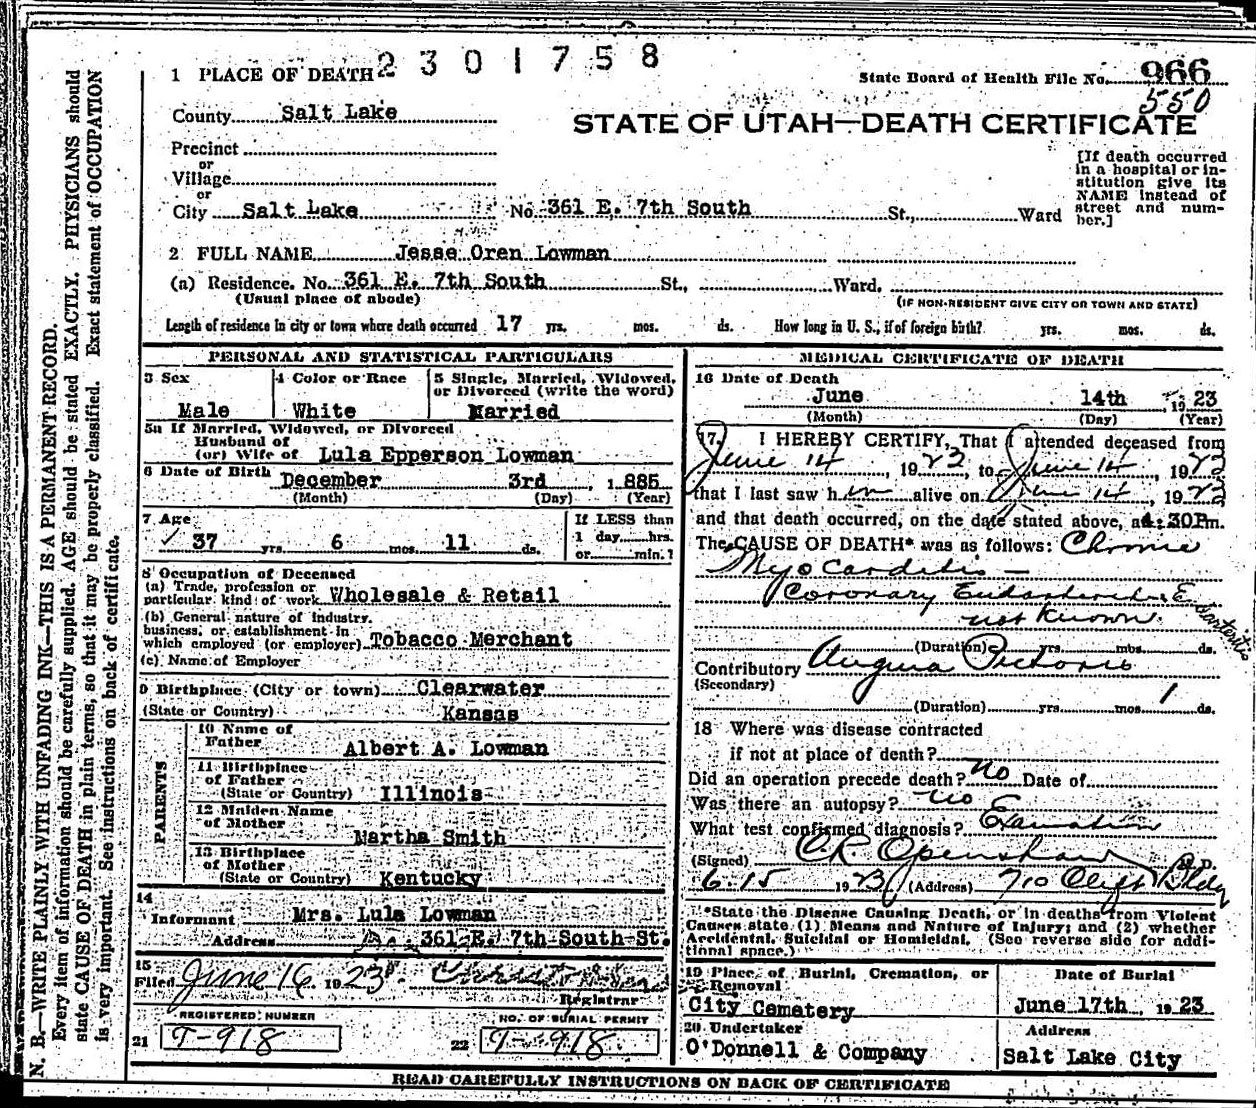 2 3 0 1 7 5 8
1 PLACE OF DEATH
State Board of Health File No. 966
550
County Salt Lake
STATE OF UTAH—DEATH CERTIFICATE
Precinct
or
Village
or
City Salt Lake No. 361 E. 7th South St., Ward
[If death occurred
in a hospital or in-
stitution give its
NAME instead of
street and num-
ber.]
2 FULL NAME Jesse Oren Lowman
(a) Residence. No. 361 E. 7th South St., Ward.
(Usual place of abode) (IF NON-RESIDENT GIVE CITY OR TOWN AND STATE)
Length of residence in city or town where death occurred 17 yrs. mos. ds. How long in U. S., if of foreign birth? yrs. mos. ds.
PERSONAL AND STATISTICAL PARTICULARS
3 Sex
Male
4 Color or Race
White
5 Single, Married, Widowed,
or Divorced (write the word)
Married
5a If Married, Widowed, or Divorced
Husband of
(or) Wife of Lula Epperson Lowman
6 Date of Birth December 3rd, 1885
(Month) (Day) (Year)
7 Age
37 yrs. 6 mos. 11 ds.
If LESS than
1 day hrs.
or min.?
8 Occupation of Deceased
(a) Trade, profession or
particular kind of work Wholesale & Retail
(b) General nature of industry,
business, or establishment in
which employed (or employer) Tobacco Merchant
(c) Name of Employer
9 Birthplace (City or town) Clearwater
(State or Country) Kansas
PARENTS
10 Name of
Father Albert A. Lowman
11 Birthplace
of Father
(State or Country) Illinois
12 Maiden Name
of Mother
Martha Smith
13 Birthplace
of Mother
(State or Country) Kentucky
14
Informant Mrs. Lula Lowman
Address 361 E. 7th South St.
15
Filed June 16, 1923
Registrar
REGISTERED NUMBER
21 T-918
NO. OF BURIAL PERMIT
22 T-918
MEDICAL CERTIFICATE OF DEATH
16 Date of Death
June 14th, 1923
(Month) (Day) (Year)
17. I HEREBY CERTIFY, That I attended deceased from
June 14, 1923, to June 14, 1923
that I last saw him alive on June 14, 1923
and that death occurred, on the date stated above, at 4:30 Pm.
The CAUSE OF DEATH* was as follows: Chronic
Myocarditis —
Coronary Endarteritis Endarteritis
not known
(Duration) yrs. mos. ds.
Contributory Angina Pectoris
(Secondary)
(Duration) yrs. mos. 1 ds.
18 Where was disease contracted
if not at place of death?
Did an operation precede death? no Date of
Was there an autopsy? no
What test confirmed diagnosis? Examation
(Signed) C.R. Openshaw M. D.
6-15 1923 (Address) 710 Clift Bldg
*State the Disease Causing Death, or in deaths from Violent
Causes state (1) Means and Nature of Injury; and (2) whether
Accidental, Suicidal or Homicidal. (See reverse side for addi-
tional space.)
19 Place of Burial, Cremation, or
Removal
City Cemetery
Date of Burial
June 17th 1923
20 Undertaker
O'Donnell & Company
Address
Salt Lake City
READ CAREFULLY INSTRUCTIONS ON BACK OF CERTIFICATE
N. B.—WRITE PLAINLY WITH UNFADING INK—THIS IS A PERMANENT RECORD.
Every item of information should be carefully supplied. AGE should be stated EXACTLY. PHYSICIANS should
state CAUSE OF DEATH in plain terms, so that it may be properly classified. Exact statement of OCCUPATION
is very important. See instructions on back of certificate.